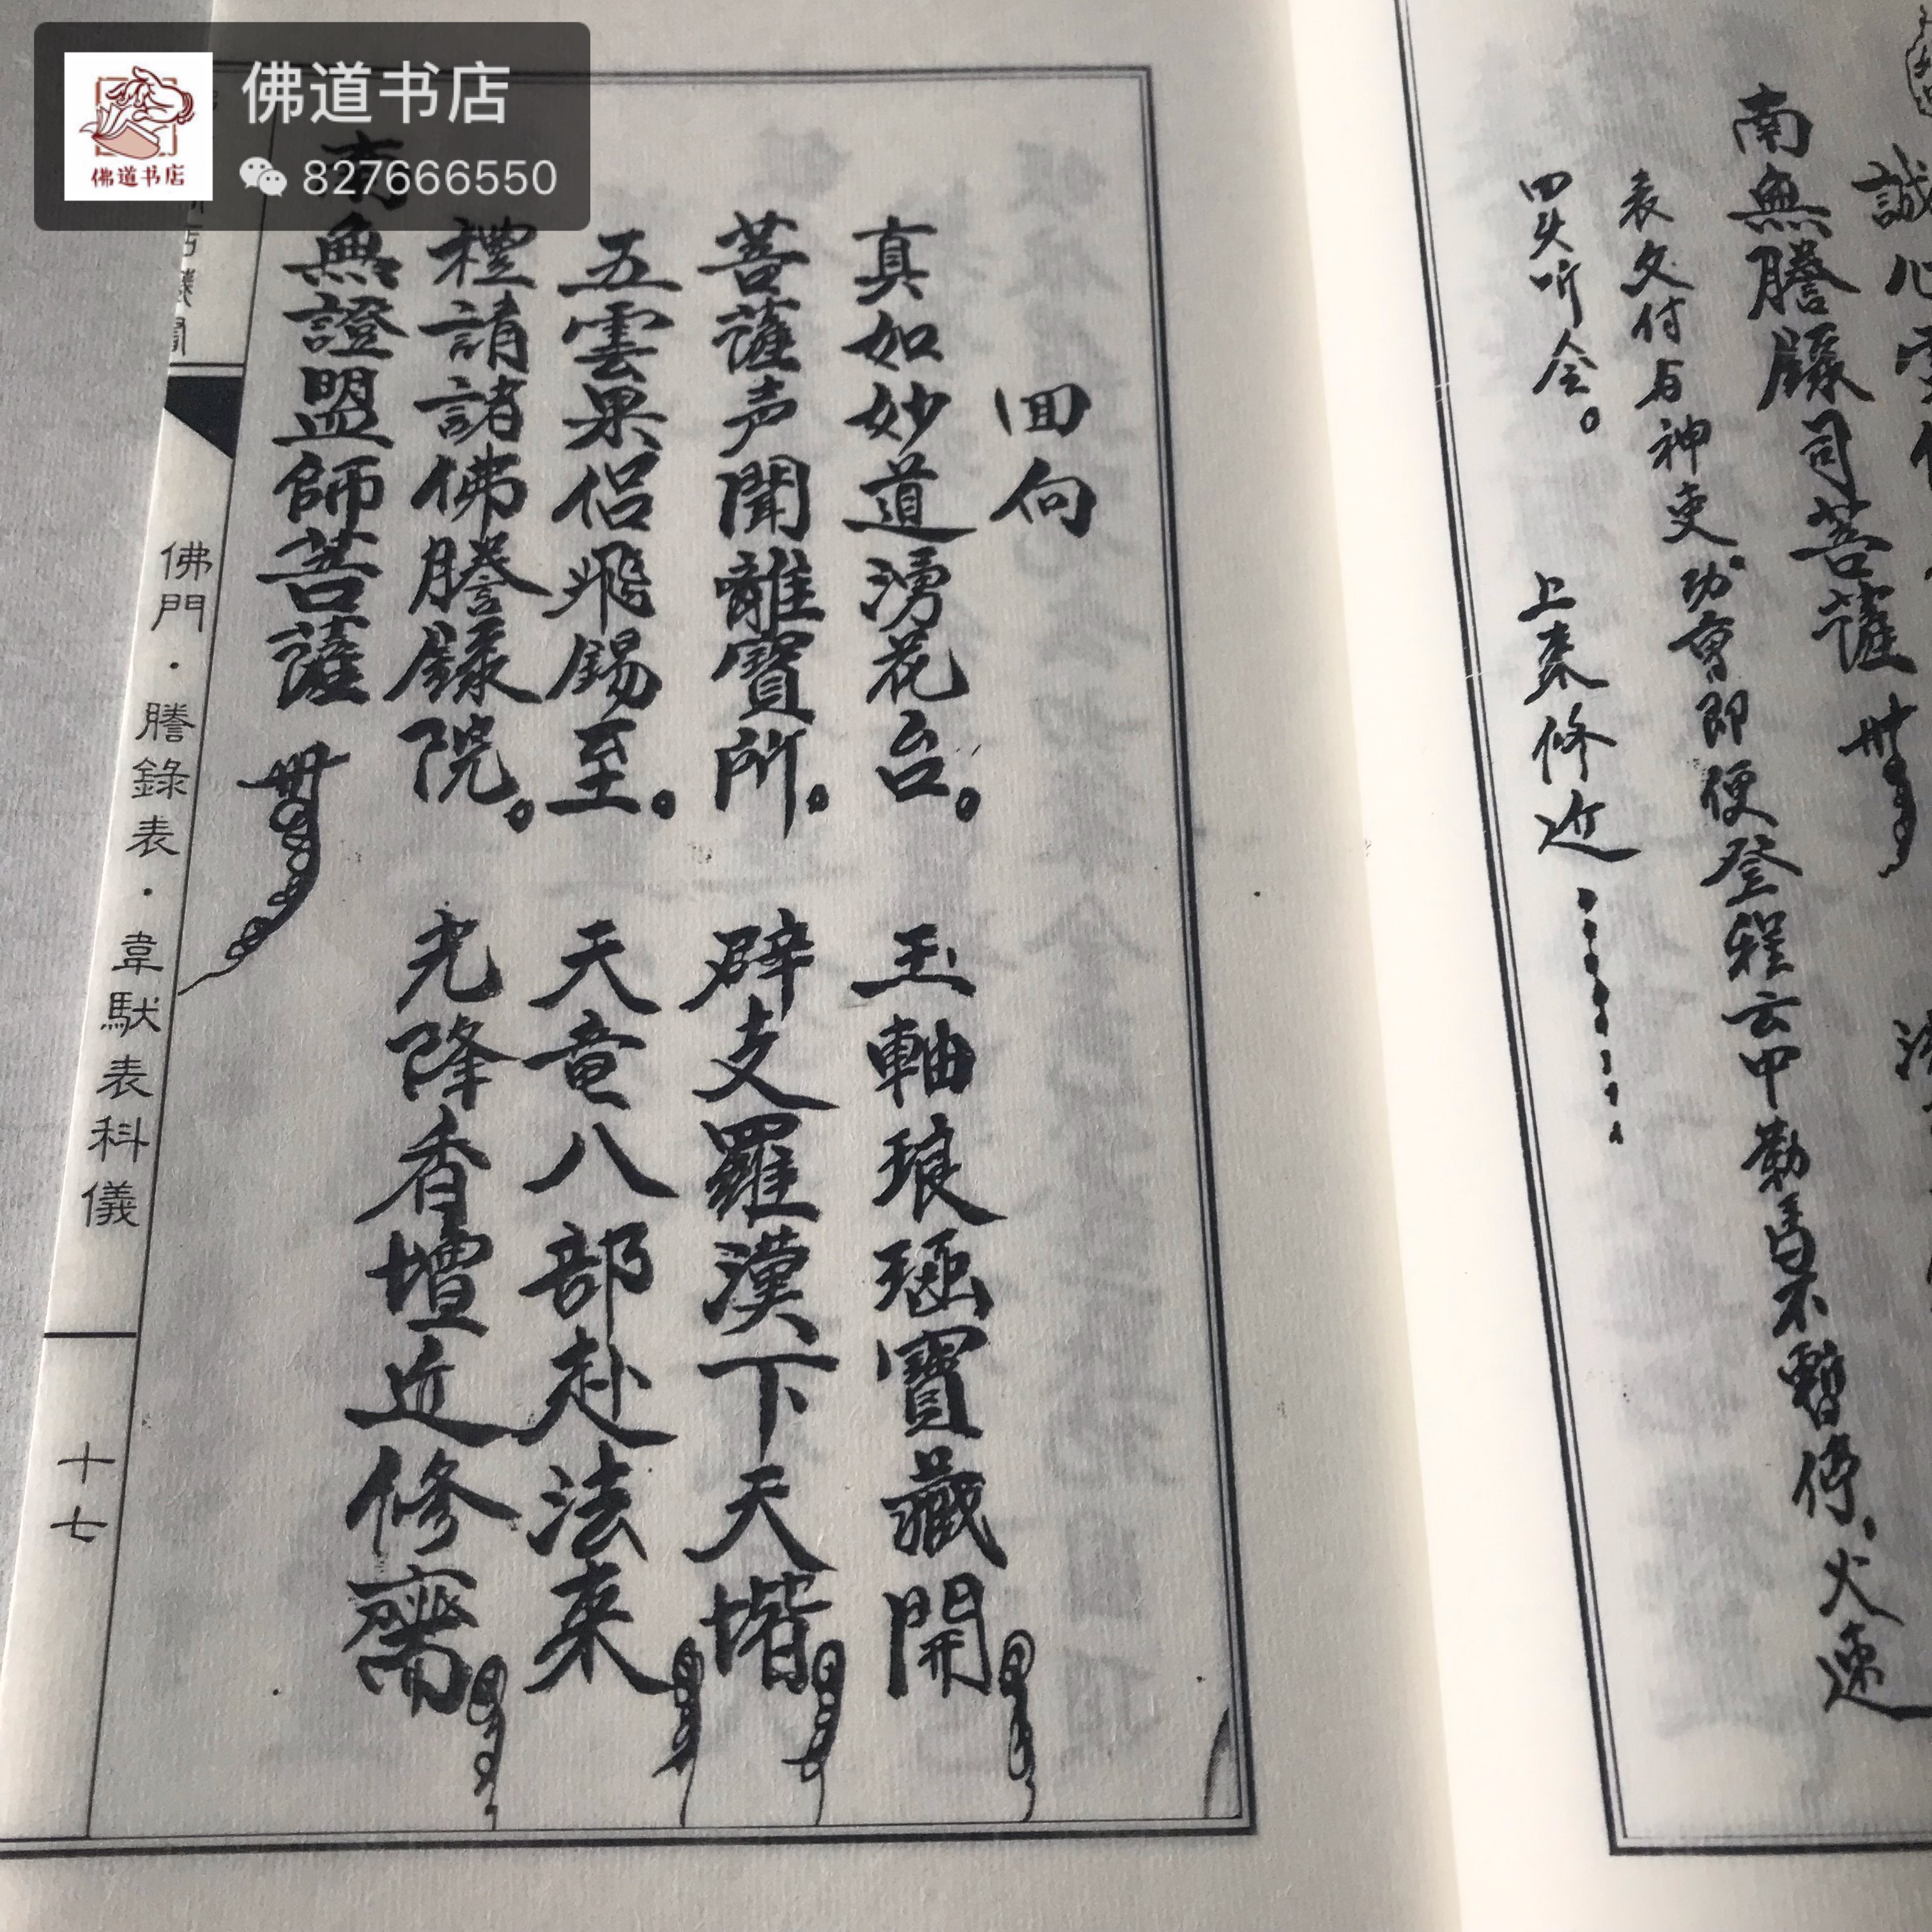 佛道书店
827666550
佛道书店
南無謄録司菩薩
表文付与神吏功曹即便登程云中勒馬不暫停火速
回头听令。 上来修近
回向
真如妙道湧花台。 玉軸琅函寶藏開
菩薩声聞離寶所。 辟支羅漢下天堦
五雲果侣飛錫至。 天竜八部赴法来
禮請諸佛謄録院。 光降香壇近修齋
南無證盟師菩薩
佛門·謄錄表·韋馱表科儀
十七